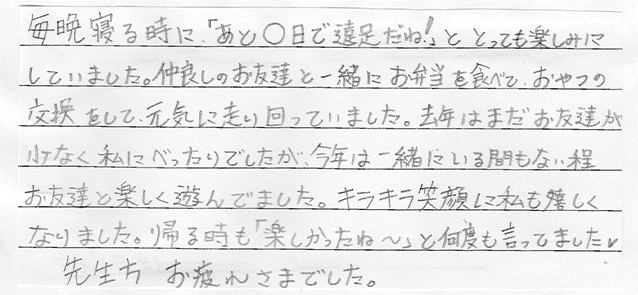 毎晩寝る時に、「あと〇日で遠足だね!」ととっても楽しみに
していました。仲良しのお友達と一緒にお弁当を食べて、おやつの
交換をして、元気に走り回っていました。去年はまだお友達が
少なく私にべったりでしたが、今年は一緒にいる間もない程
お友達と楽しく遊んでました。キラキラ笑顔に私も嬉しく
なりました。帰る時も「楽しかったね〜」と何度も言ってました♥
先生方 お疲れさまでした。